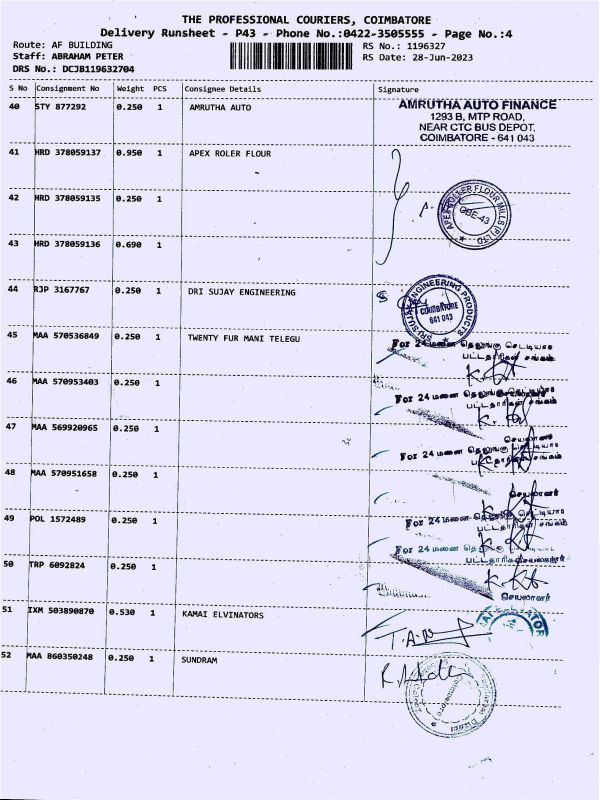 THE PROFESSIONAL COURIERS, COIMBATORE
Delivery Runsheet - P43 - Phone No.:0422-3505555 - Page No.:4
Route: AF BUILDING
RS No.: 1196327
Staff: ABRAHAM PETER
RS Date: 28-Jun-2023
DRS No.: DCJB119632704
S No Consignment No Weight PCS Consignee Details Signature
40 STY 877292 0.250 1 AMRUTHA AUTO
AMRUTHA AUTO FINANCE
1293 B, MTP ROAD,
NEAR CTC BUS DEPOT,
COIMBATORE - 641 043
41 HRD 378059137 0.950 1 APEX ROLER FLOUR
42 HRD 378059135 0.250 1
APEX ROLLER FLOUR MILLS (P) LTD
CBE-43
43 HRD 378059136 0.690 1
44 RJP 3167767 0.250 1 DRI SUJAY ENGINEERING
SRI SUJAY ENGINEERING PRODUCTS
COIMBATORE
641 043
45 MAA 570536849 0.250 1 TWENTY FUR MANI TELEGU
For 24 மனை தெலுங்கு செட்டியார்
பட்டதாரிகள் சங்கம்
46 MAA 570953403 0.250 1
For 24 மனை தெலுங்கு செட்டியார்
பட்டதாரிகள் சங்கம்
47 MAA 569920965 0.250 1
செயலாளர்
For 24 மனை தெலுங்கு செட்டியார்
பட்டதாரிகள் சங்கம்
48 MAA 570951658 0.250 1
செயலாளர்
49 POL 1572489 0.250 1
For 24 மனை தெலுங்கு செட்டியார்
பட்டதாரிகள் சங்கம்
50 TRP 6092824 0.250 1
For 24 மனை தெலுங்கு செட்டியார்
பட்டதாரிகள் சங்கம்
செயலாளர்
51 IXM 503890870 0.530 1 KAMAI ELVINATORS
52 MAA 860350248 0.250 1 SUNDRAM